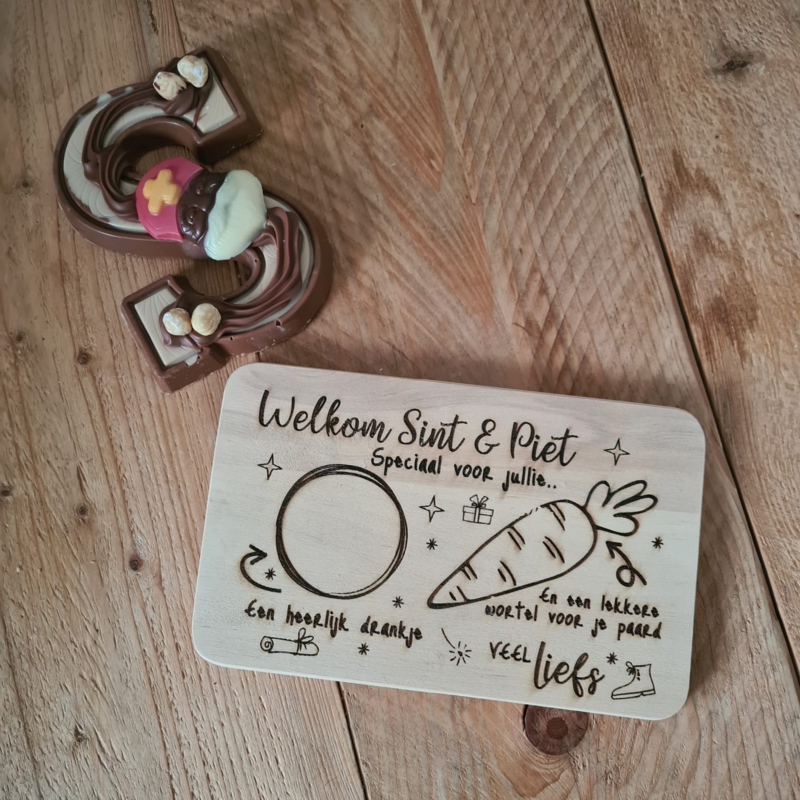 Welkom Sint & Piet
Speciaal voor jullie..
Een heerlijk drankje
En een lekkere
wortel voor je paard
VEEL liefs